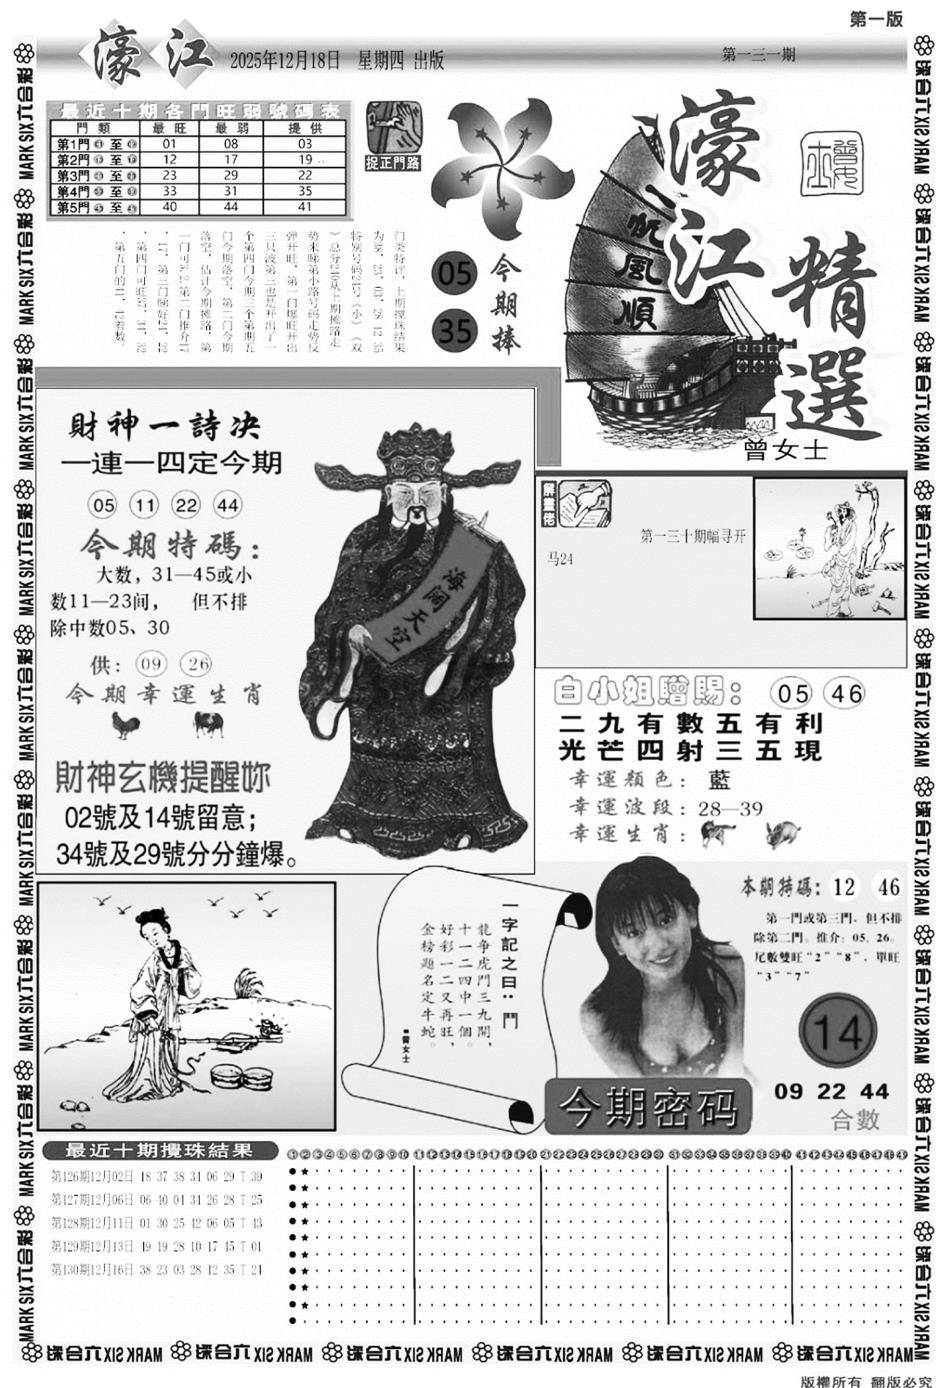 第一版
濠江
2025年12月18日 星期四 出版
第一三一期
最近十期各門旺弱號碼表
門類 最旺 最弱 提供
第1門 至 01 08 03
第2門 至 12 17 19
第3門 至 23 29 22
第4門 至 33 31 35
第5門 至 40 44 41
捉正門路
05
35
今期捧
一帆風順
濠江精選
曾女士
财神一詩决
一連一四定今期
05 11 22 44
今期特碼：
大数，31—45或小
数11—23间， 但不排
除中数05、30
供：09 26
今期幸運生肖
財神玄機提醒妳
02號及14號留意；
34號及29號分分鐘爆。
海阔天空
第一三十期幅寻开
马24
白小姐贈賜：05 46
二九有數五有利
光芒四射三五現
幸運顏色：藍
幸運波段：28—39
幸運生肖：
一字記之曰：鬥
龍争虎鬥三九開，
十一二四中一個。
好彩一二又再旺，
金榜題名定牛蛇。
●曾女士
本期特碼：12 46
第一門或第三門，但不排
除第二門。推介：05. 26。
尾數雙旺“2”“8”，單旺
“3”“7”
14
今期密码
09 22 44
合數
最近十期攪珠結果
第126期12月02日 18 37 38 34 06 29 T 39
第127期12月06日 06 40 04 34 26 28 T 25
第128期12月11日 01 30 25 42 06 05 T 43
第129期12月13日 49 19 28 10 17 45 T 01
第130期12月16日 38 23 03 28 12 35 T 24
MARK SIX六合彩
版權所有 翻版必究